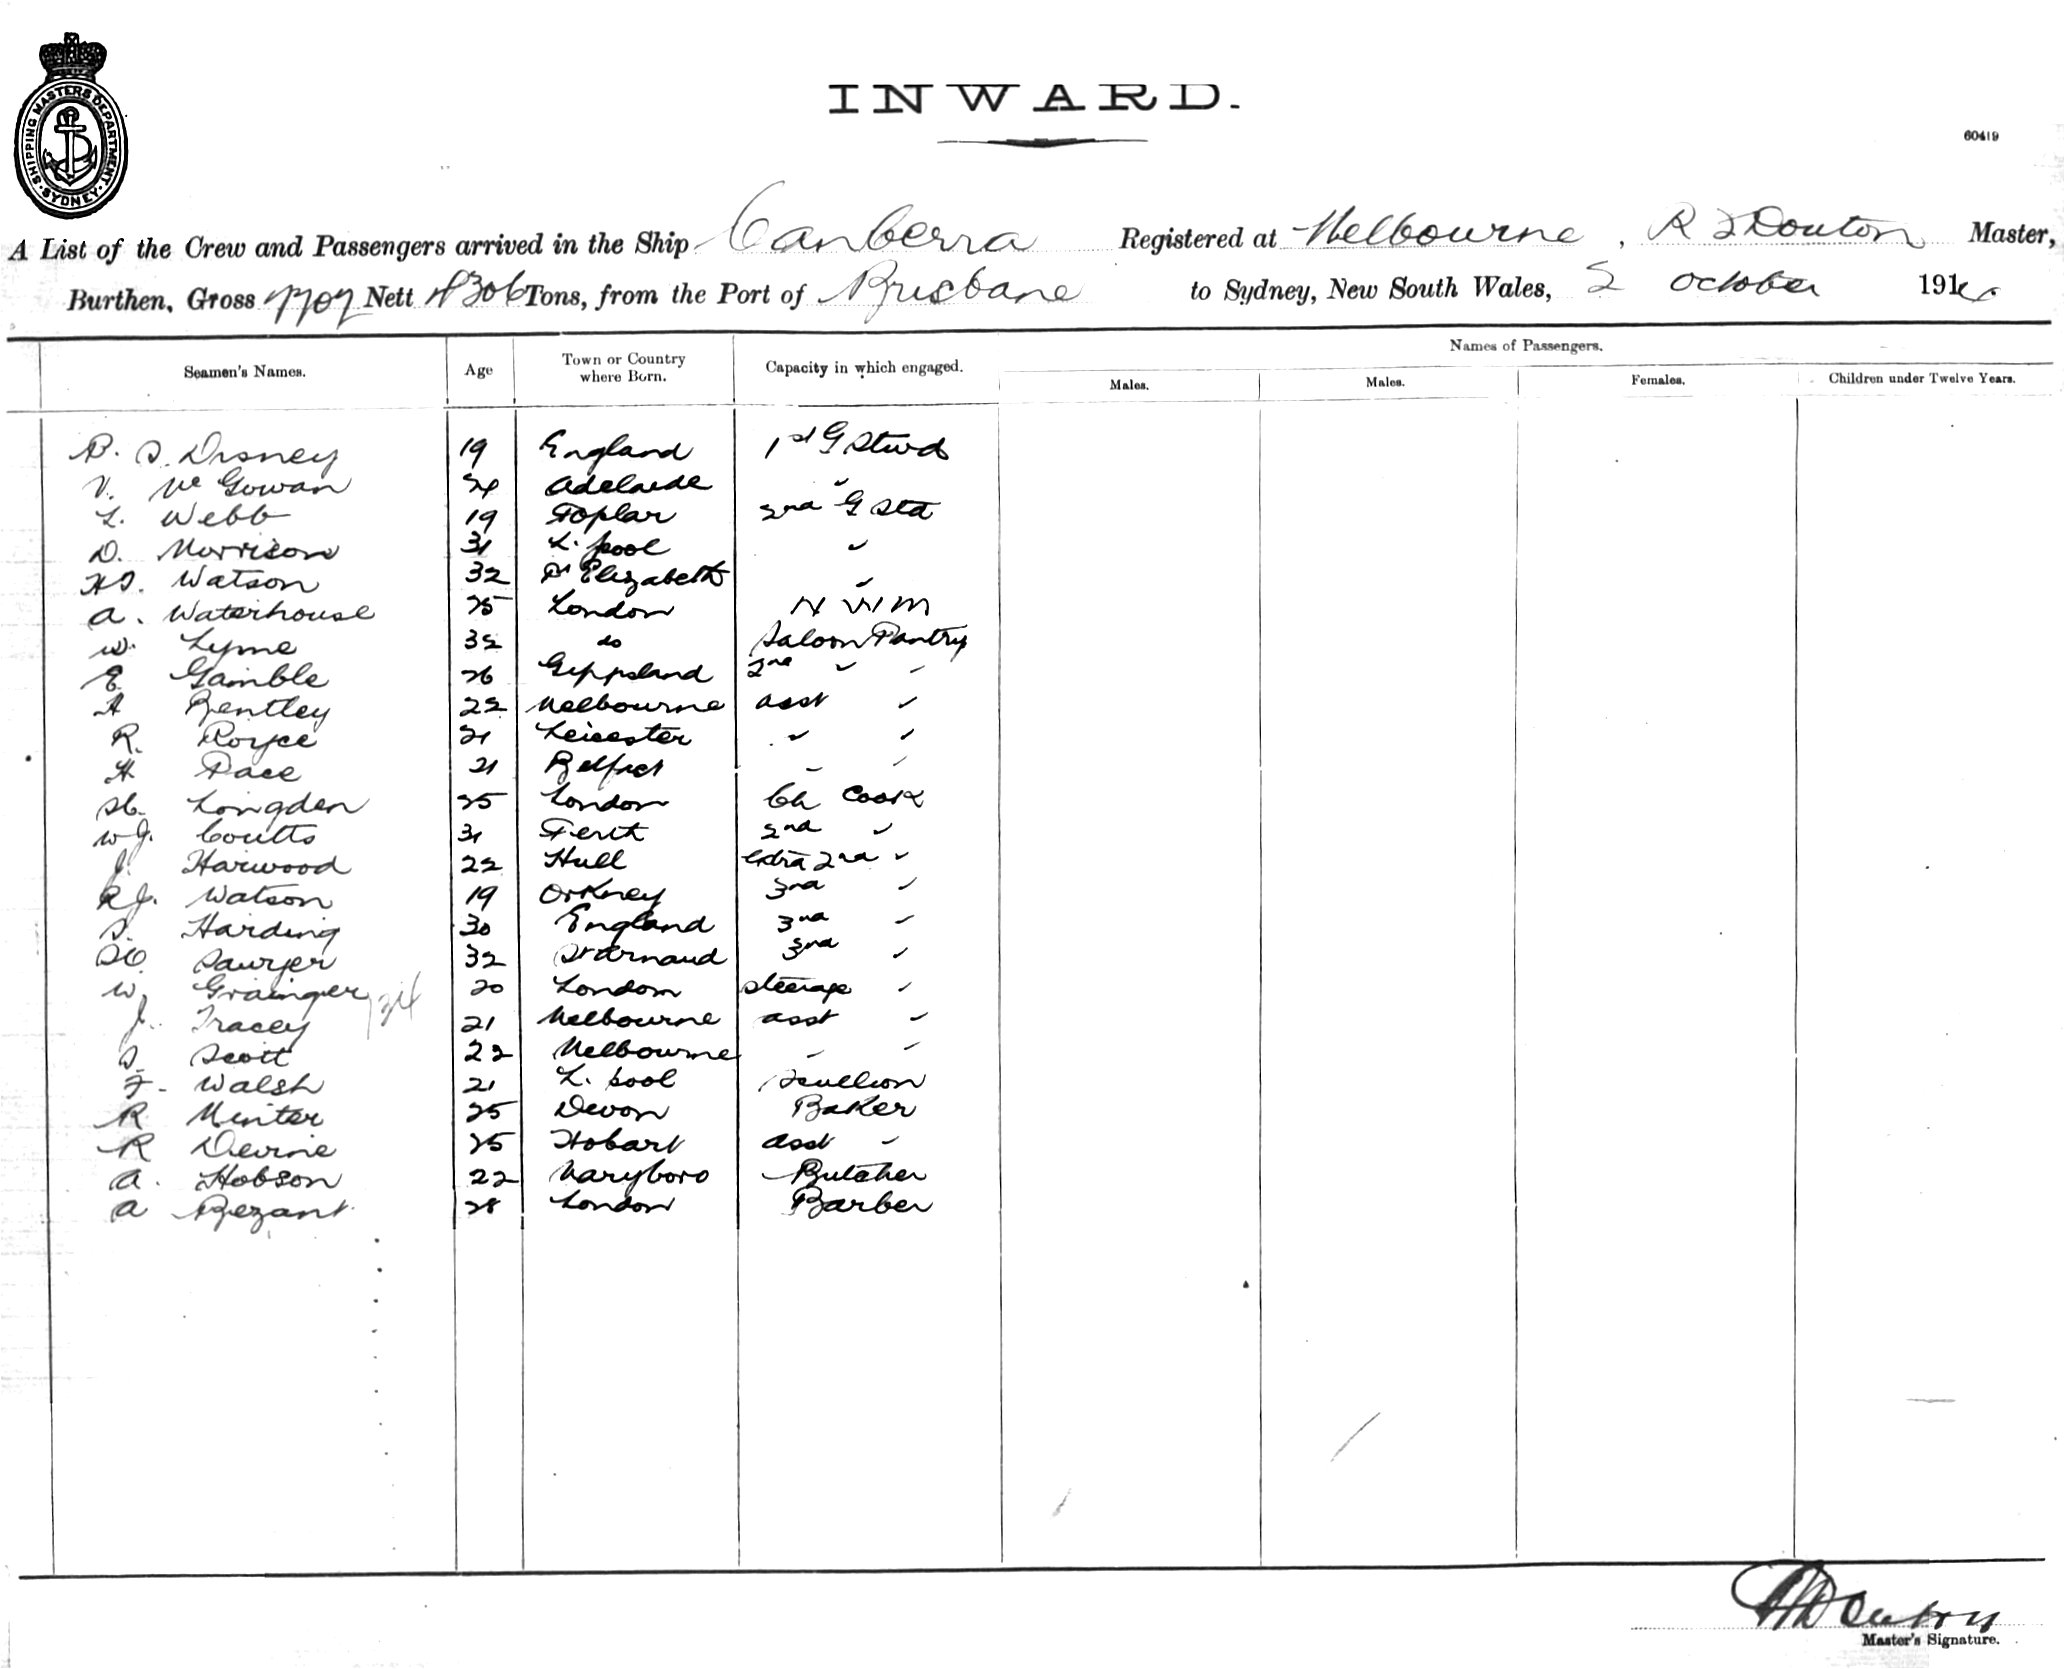 SHIPPING MASTERS DEPARTMENT. SYDNEY.
INWARD.
60419
A List of the Crew and Passengers arrived in the Ship Canberra Registered at Melbourne, R Douton Master,
Burthen, Gross 7707 Nett 4306 Tons, from the Port of Brisbane to Sydney, New South Wales, 2 October 191
Seamen's Names. Age Town or Country where Born. Capacity in which engaged. Names of Passengers.
Males. Males. Females. Children under Twelve Years.
Disney 19 England 1st G Stwd
V. Mc Gowan 24 Adelaide "
L. Webb 19 Poplar 2nd G Std
D. Morrison 31 L. pool "
H S. Watson 32 Pt Elizabeth "
A. Waterhouse 25 London N W M
W. Lyme 32 do Saloon Pantry
E Gamble 26 Gippsland 2nd " "
A Bentley 22 Melbourne asst "
R. Royce 21 Leicester " "
H Pace 21 Belfast " "
Longden 25 London Ch Cook
W J. Coutts 31 Perth 2nd "
J. Harwood 22 Hull Extra 2nd "
R J. Watson 19 Orkney 3rd "
S. Harding 30 England 3rd "
Sawyer 32 St Arnaud 3rd "
W. Grainger 20 London Steerage "
J. Tracey 21 Melbourne asst "
S. Scott 22 Melbourne " "
F. Walsh 21 L. pool Scullion
R Minter 25 Devon Baker
R Devine 25 Hobart asst "
A. Hobson 22 Maryboro Butcher
A Bezant 28 London Barber
Douton
Master's Signature.